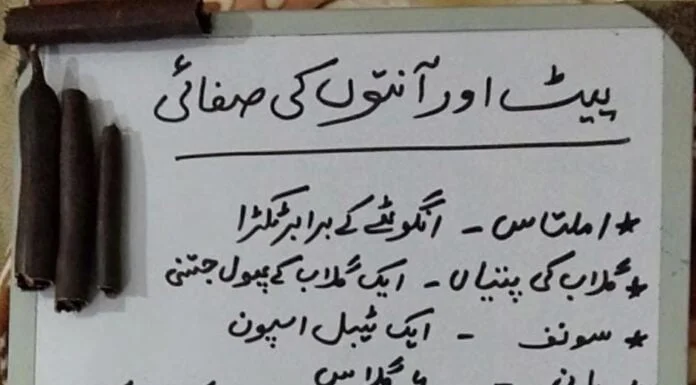 پیٹ اور آنتوں کی صفائی
* املتاس - انگوٹھے کے برابر ٹکڑا
* گلاب کی پتیاں - ایک گلاب کے پھول جتنی
* سونف - ایک ٹیبل اسپون